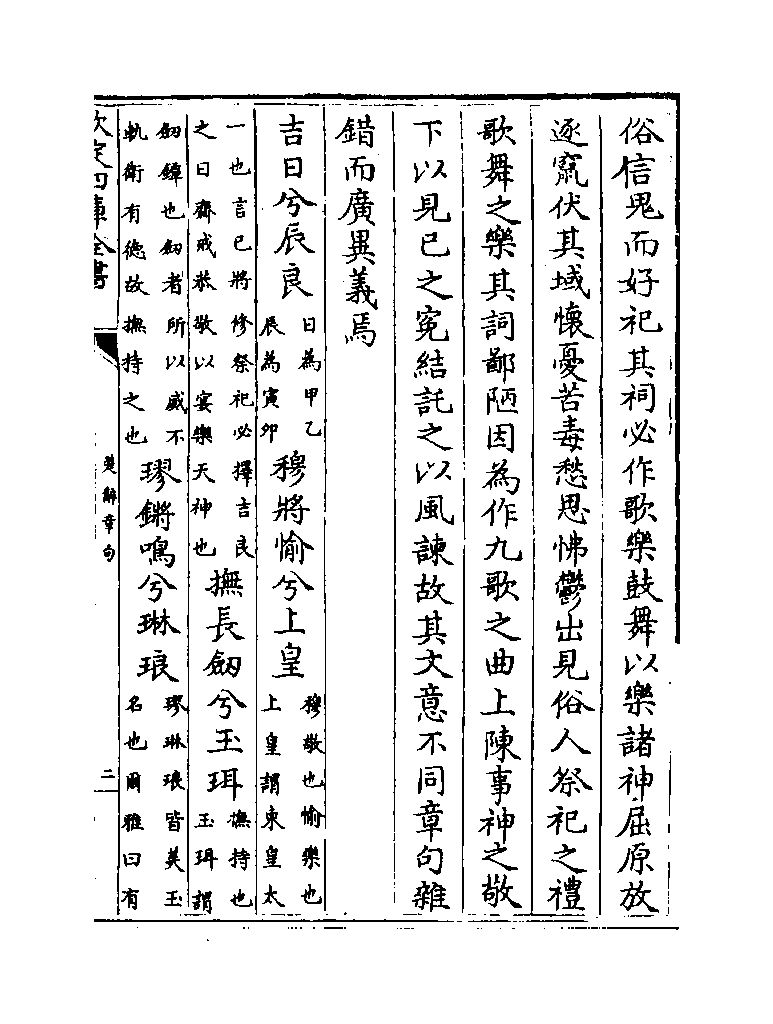 俗信鬼而好祀其祠必作歌樂鼓舞以樂諸神屈原放
逐竄伏其域懷憂苦毒愁思怫鬱出見俗人祭祀之禮
歌舞之樂其詞鄙陋因為作九歌之曲上陳事神之敬
下以見己之冤結託之以風諫故其文意不同章句雜
錯而廣異義焉
吉日兮辰良日為甲乙辰為寅卯穆將愉兮上皇穆敬也愉樂也上皇謂東皇太
一也言己將修祭祀必擇吉良之日齋戒恭敬以宴樂天神也撫長劔兮玉珥撫持也玉珥謂
劔鐔也劔者所以威不軌衛有德故撫持之也璆鏘鳴兮琳琅璆琳琅皆美玉名也爾雅曰有
欽定四庫全書
楚辭章句
二